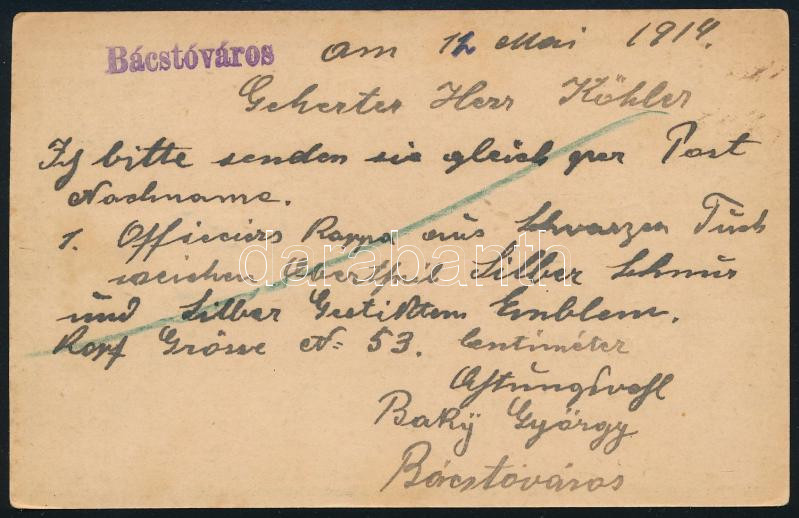 Bácstóváros am 12 Mai 1914.
Geherter Herr Köhler
Ich bitte senden sie gleich per Post
Nachname.
1. Officiers Kappa aus Schvarzen Tuch
weichen Obertheil Silber Schnur
und Silber Gestikten Emblem.
Kopf Grösse N= 53. Centiméter
Achtungsvohl
Baky György
Bácstóváros
darabanth